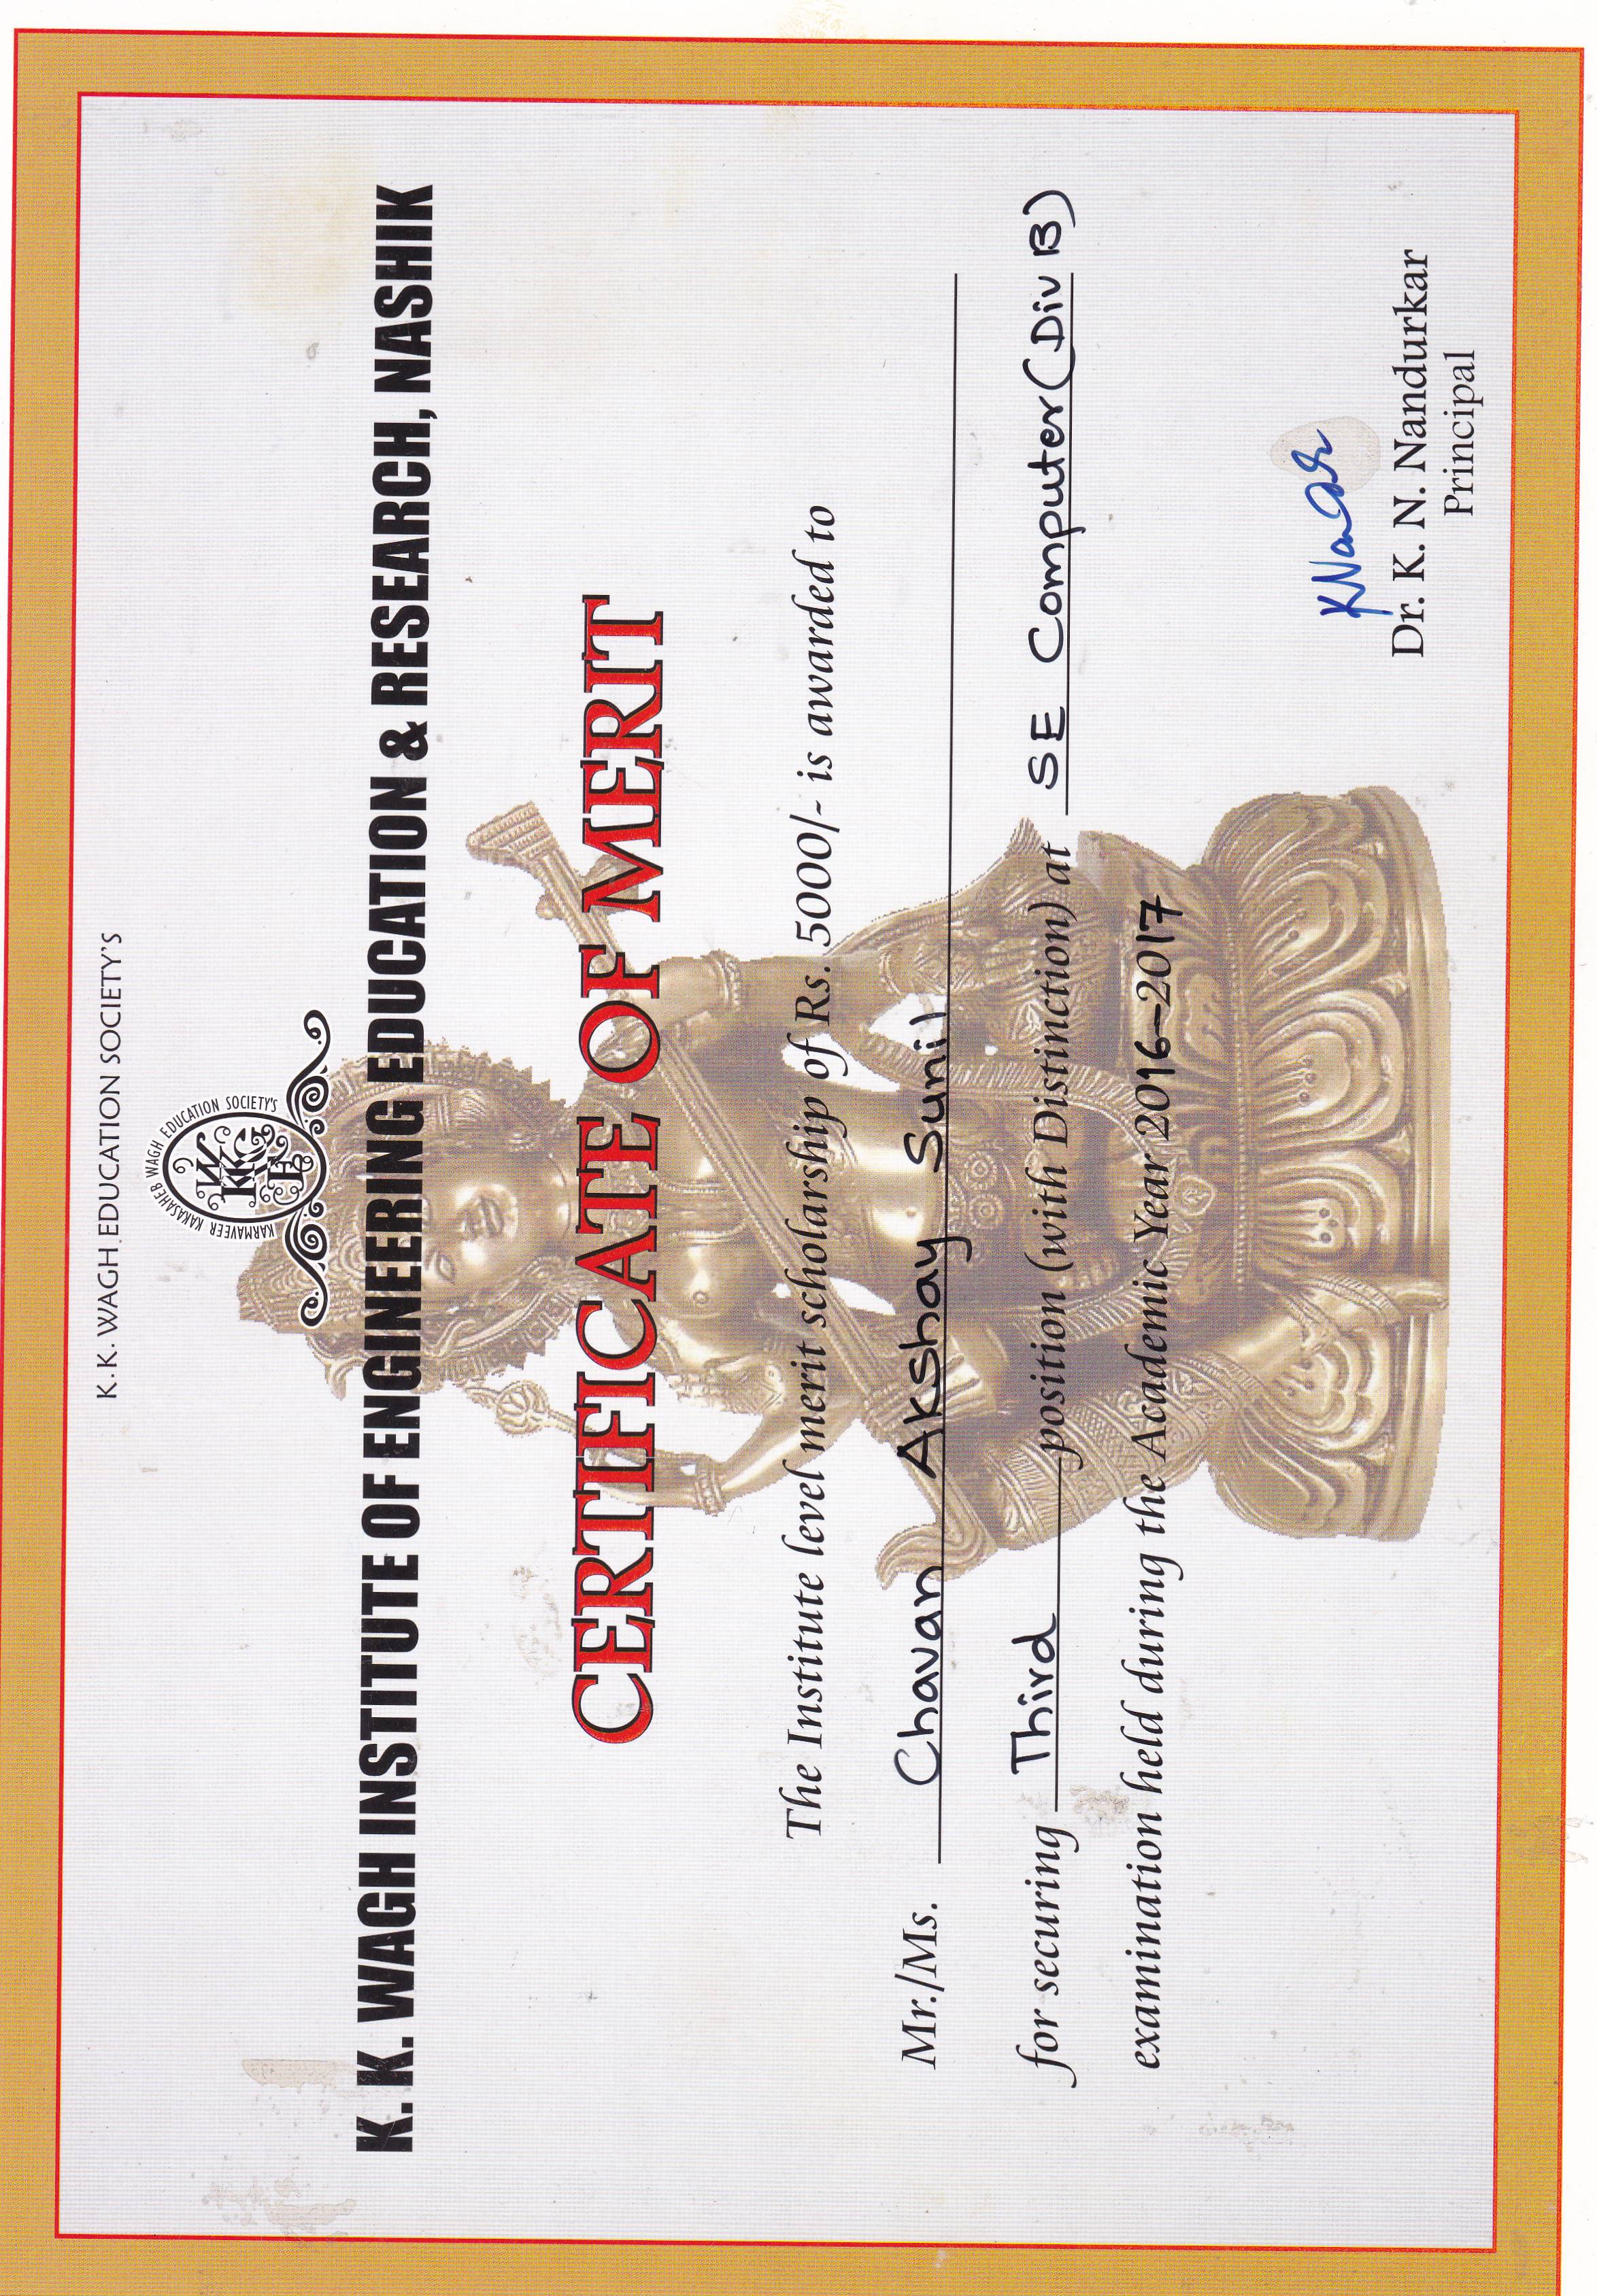 K. K. WAGH EDUCATION SOCIETY'S
KARMAVEER KAKASAHEB WAGH EDUCATION SOCIETY'S
K. K. WAGH INSTITUTE OF ENGINEERING EDUCATION & RESEARCH, NASHIK
CERTIFICATE OF MERIT
The Institute level merit scholarship of Rs. 5000/- is awarded to
Mr./Ms. Chavan Akshay Sunil
for securing Third position (with Distinction) at SE Computer (Div B)
examination held during the Academic Year 2016-2017
Dr. K. N. Nandurkar
Principal